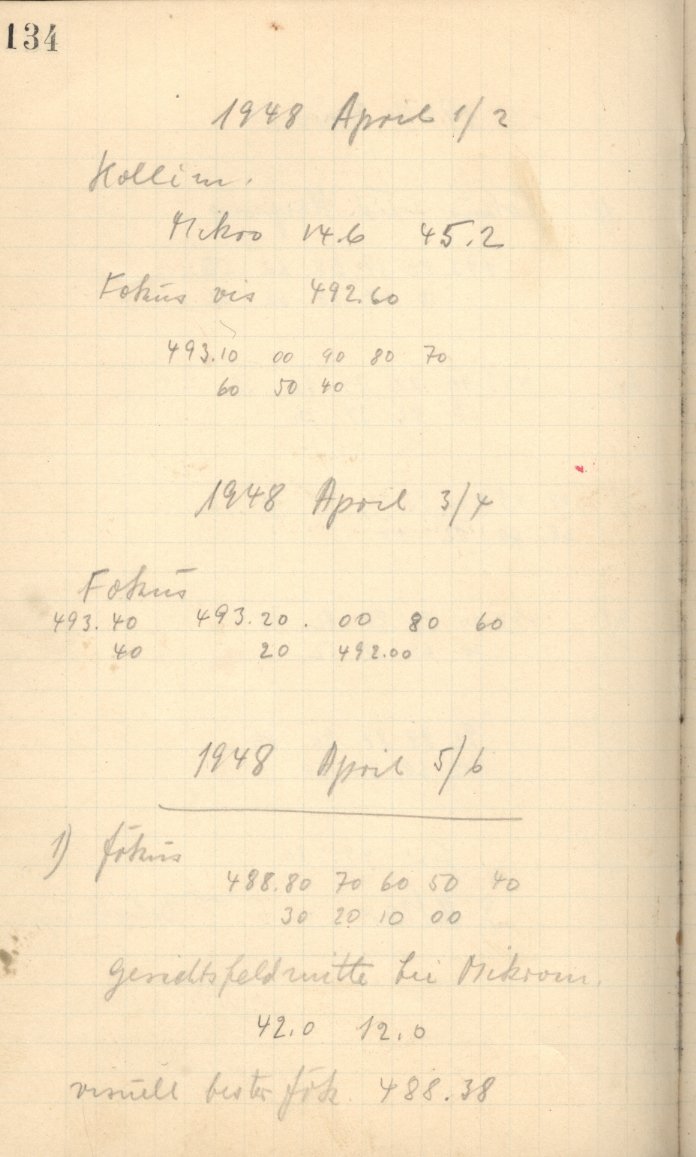 134
1948 April 1/2
Kollim.
Mikro 14.6 45.2
Fokus vis 492.60
493.10 00 90 80 70
60 50 40
1948 April 3/4
Fokus
493.40 493.20. 00 80 60
40 20 492.00
1948 April 5/6
1) Fokus
488.80 70 60 50 40
30 20 10 00
Gesichtsfeldmitte bei Mikrom.
42.0 12.0
visuell bester Fok. 488.38